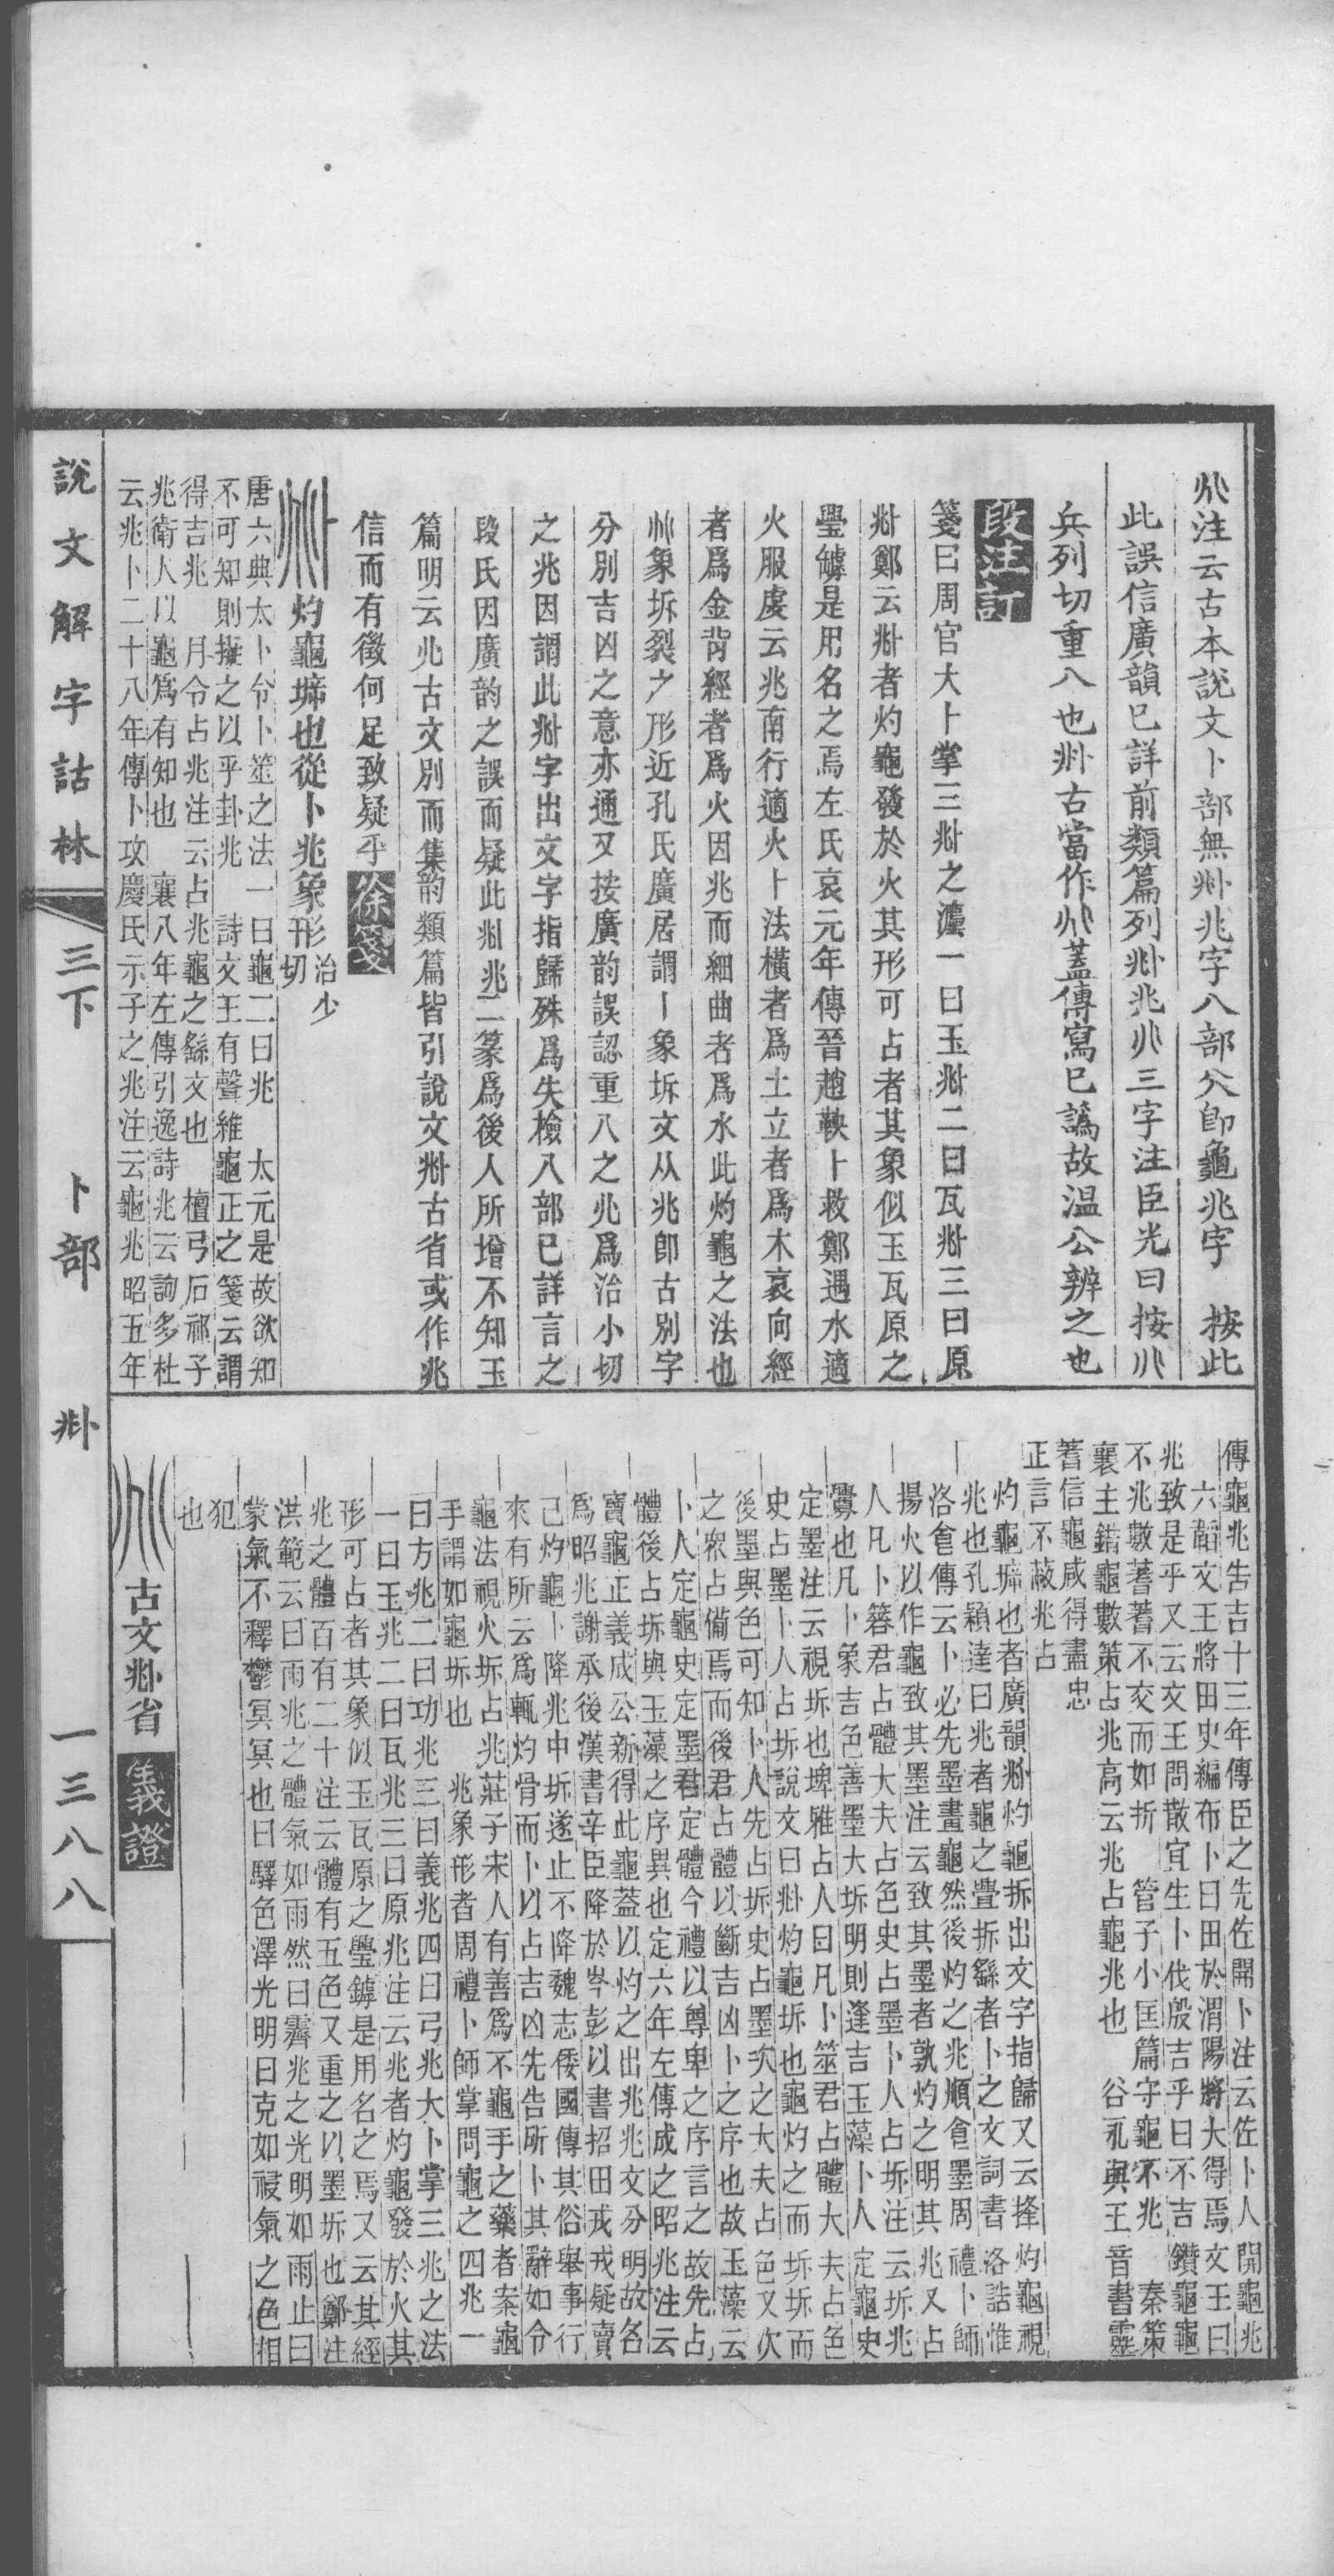 𠔁注云古本說文卜部無𠧞兆字八部㕣即龜兆字　按此
此誤信廣韻已詳前類篇列𠧞兆𠔁三字注臣光曰按𠔁
兵列切重八也𠧞古當作𠔁蓋傳寫已譌故温公辨之也
段注訂
箋曰周官大卜掌三𠧞之灋一曰玉𠧞二曰瓦𠧞三曰原
𠧞鄭云𠧞者灼龜發於火其形可占者其象似玉瓦原之
璺罅是用名之焉左氏哀元年傳晉趙鞅卜救鄭遇水適
火服虔云兆南行適火卜法橫者爲土立者爲木衺向經
者爲金背經者爲火因兆而細曲者爲水此灼龜之法也
𠔁象坼裂之形近孔氏廣居謂丨象坼文从兆即古別字
分別吉凶之意亦通又按廣韵誤認重八之𠔁爲治小切
之兆因謂此𠧞字出文字指歸殊爲失檢八部已詳言之
段氏因廣韵之誤而疑此𠧞兆二篆爲後人所增不知玉
篇明云𠔁古文別而集韵類篇皆引說文𠧞古省或作兆
信而有徵何足致疑乎徐箋
灼龜㙠也從卜兆象形治少切
唐六典太卜令卜筮之法一曰龜二曰兆　太元是故欲知
不可知則擬之以乎卦兆　詩文王有聲維龜正之箋云謂
得吉兆　月令占兆注云占兆龜之繇文也　檀弓石祁子
兆衛人以龜爲有知也　襄八年左傳引逸詩兆云詢多杜
云兆卜二十八年傳卜攻慶氏示子之兆注云龜兆昭五年
傳龜兆告吉十三年傳臣之先佐開卜注云佐卜人開龜兆
六韜文王將田史編布卜曰田於渭陽將大得焉文王曰
兆致是乎又云文王問散宜生卜伐殷吉乎曰不吉鑽龜龜
不兆數蓍蓍不交而如折　管子小匡篇守龜不兆　秦策
襄主錯龜數策占兆高云兆占龜兆也　谷永與王音書靈
蓍信龜咸得盡忠
正言不蔽兆占
灼龜㙠也者廣韻𠧞灼龜拆出文字指歸又云𤓽灼龜視
兆也孔穎達曰兆者龜之疊拆繇者卜之文詞書洛誥惟
洛食傳云卜必先墨畫龜然後灼之兆順食墨周禮卜師
揚火以作龜致其墨注云致其墨者孰灼之明其兆又占
人凡卜簭君占體大夫占色史占墨卜人占坼注云坼兆
釁也凡卜象吉色善墨大坼明則逢吉玉藻卜人定龜史
定墨注云視坼也埤雅占人曰凡卜筮君占體大夫占色
史占墨卜人占坼說文曰𠧞灼龜坼也龜灼之而坼坼而
後墨與色可知卜人先占坼史占墨次之大夫占色又次
之衆占備焉而後君占體以斷吉凶卜之序也故玉藻云
卜人定龜史定墨君定體今禮以尊卑之序言之故先占
體後占坼與玉藻之序異也定六年左傳成之昭兆注云
寶龜正義成公新得此龜蓋以灼之出兆兆文分明故名
爲昭兆謝承後漢書辛臣降於岑彭以書招田戎戎疑賣
己灼龜卜降兆中坼遂止不降魏志倭國傳其俗舉事行
來有所云爲輒灼骨而卜以占吉凶先告所卜其辭如令
龜法視火坼占兆莊子宋人有善爲不龜手之藥者案龜
手謂如龜坼也　兆象形者周禮卜師掌問龜之四兆一
曰方兆二曰功兆三曰義兆四曰弓兆大卜掌三兆之法
一曰玉兆二曰瓦兆三曰原兆注云兆者灼龜發於火其
形可占者其象似玉瓦原之璺罅是用名之焉又云其經
兆之體百有二十注云體有五色又重之以墨坼也鄭注
洪範云曰雨兆之體氣如雨然曰霽兆之光明如雨止曰
蒙氣不釋鬱冥冥也曰驛色澤光明曰克如祲氣之色相
犯
也
古文𠧞省　義證
說文解字詁林　三下　卜部　𠧞　一三八八